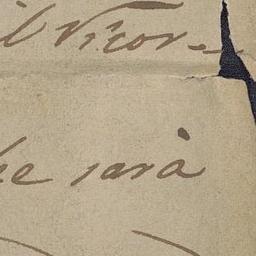 il Vicor
he sarà